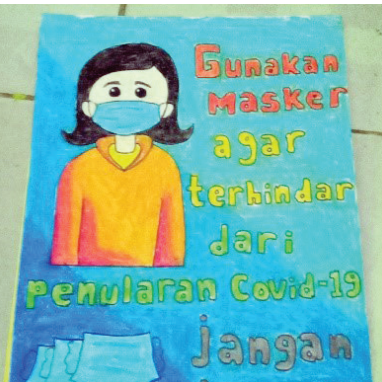 Gunakan
masker
agar
terhindar
dari
Penularan Covid-19
jangan